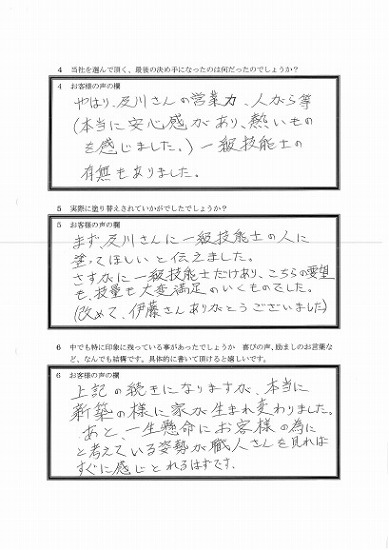 4 当社を選んで頂く、最後の決め手になったのは何だったのでしょうか？
4 お客様の声の欄
やはり、及川さんの営業力、人がら等
(本当に安心感があり、熱いもの
を感じました。) 一級技能士の
有無もありました。
5 実際に塗り替えされていかがでしたでしょうか？
5 お客様の声の欄
まず、及川さんに一級技能士の人に
塗ってほしいと伝えました。
さすがに一級技能士だけあり、こちらの要望
も、技量も大変満足のいくものでした。
(改めて、伊藤さんありがとうございました)
6 中でも特に印象に残っている事があったでしょうか 喜びの声、励ましのお言葉な
ど、なんでも結構です。具体的に書いて頂けると嬉しいです。
6 お客様の声の欄
上記の続きになりますが、本当に
新築の様に家が生まれ変わりました。
あと、一生懸命にお客様の為に
と考えている姿勢が職人さんを見れば
すぐに感じとれるはずです。